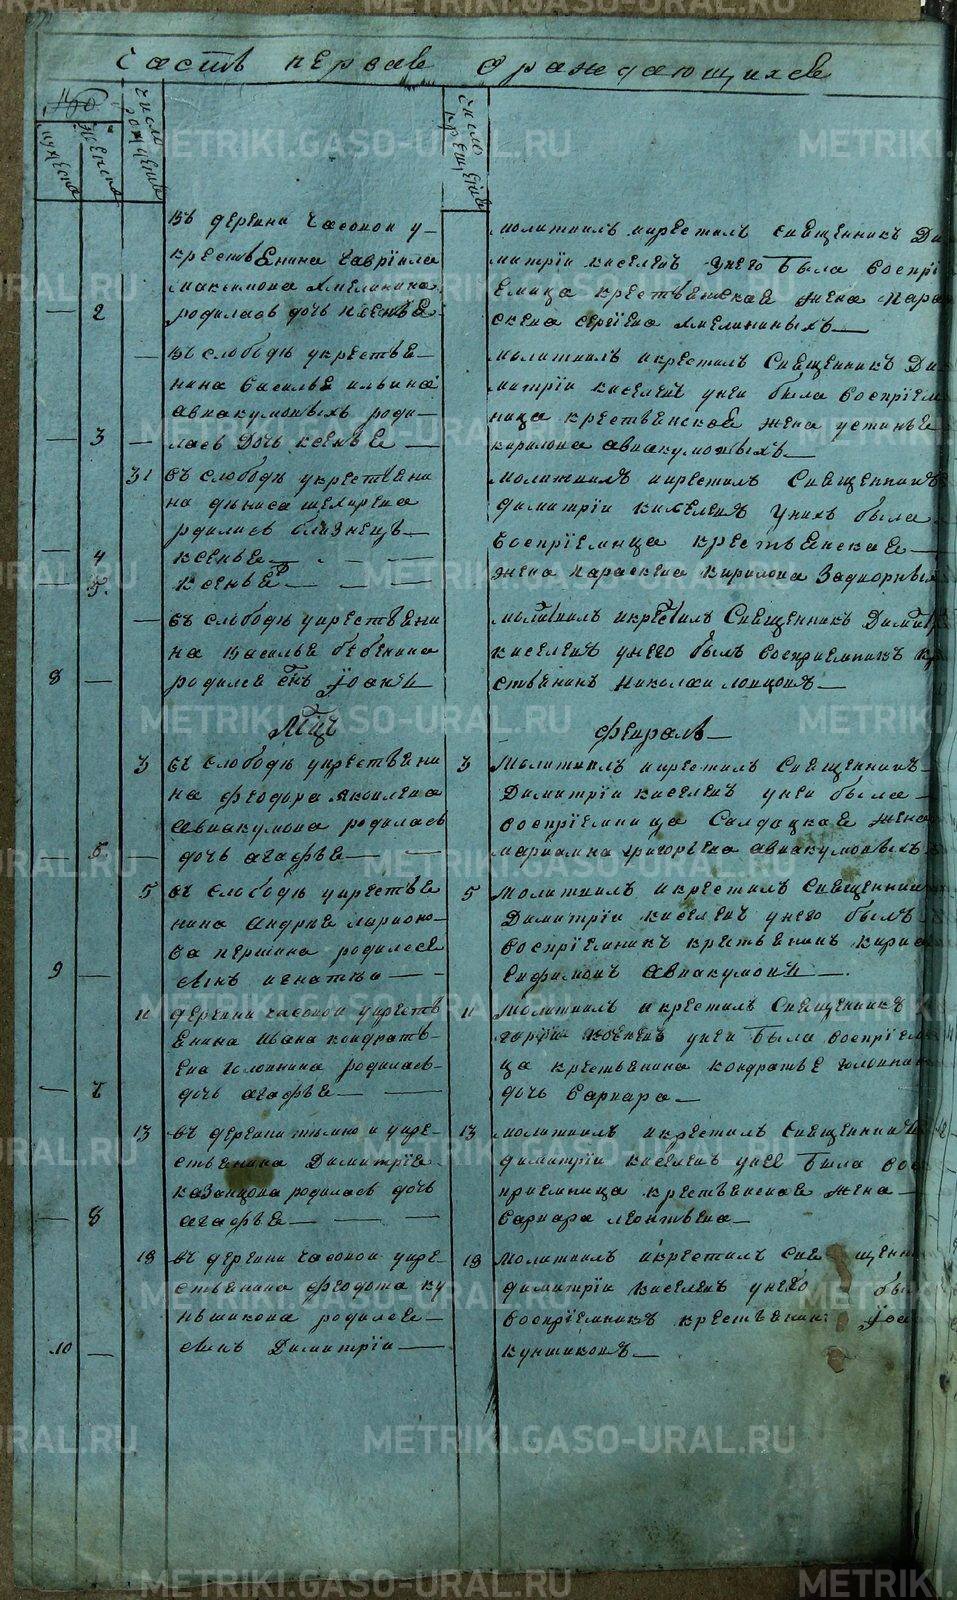 часть первая ораждающихся
число рождения
мужеска
женска
число крещения
въ деревни часовои у
крестьянина гаврiила
максимова Амелинина
2 родилась дочь ксенья
молитвилъ икрестилъ священникъ Ди
митрiи киселевъ унего была воспрi
емница крестьянская жена пара
скева сергiева Амелининыхъ
въ слободе укрестья
нина василья ильина
аввакумовыхъ роди
3 лась дочь ксенья
молитвилъ икрестилъ Священникъ Ди
митрiи киселевъ унеи была воспрiем
ница крестьянская жена устинья
кирилова аввакумовыхъ
31 въ слободе укрестьяни
на дениса шелирева
родились близнецы
4 ксенья
5. ксенья
молитвилъ икрестилъ Священникъ
димитрiи киселевъ унихъ была
воспрiемница крестьянская
жена параскева кирилова Задворныхъ
въ слободе укрестьяни
на василья бабкина
8 родился сынъ Iоаннъ
молитвилъ икрестилъ Священникъ Димитрi
киселевъ унего былъ восприемникъ кре
стьянинъ николаи
Мцъ февраль
3 въ слободе укрестьяни
на феодора яковлева
аввакумова родилась
5 дочь агафья
3 Молитвилъ икрестилъ Священникъ
Димитрiи киселевъ унеи была
воспрiемница Салдацкая жена
марiамна григорьева аввакумовыхъ
5 въ слободе укрестья
нина Андрея ларионо
ва першина родился
9 сынъ игнатiй
5 молитвилъ икрестилъ Священникъ
Димитрiи киселевъ унего былъ
воспрiемникъ крестьянинъ кирил
аввакумовъ
11 деревни часовои укресть
янина Ивана кондрать
ева головнина родилась
7 дочь агафья
11 Молитвилъ икрестилъ Священникъ
унеи была воспрiемни
ца крестьянина кондратья головнин
дочь варвара
13 въ деревни укре
стьянина Димитрiя
казанцова родилась дочь
8 агафья
13 молитвилъ икрестилъ Священникъ
димитрiи киселевъ унее была вос
приемница крестьянская жена
варвара леонтьева
19 въ деревни часовои укре
стьянина феодота ку
ншикова родился
10 сынъ Димитрiи
19 молитвилъ икрестилъ священни
димитрiи киселевъ унего бы
воспрiемникъ крестьянинъ Iоа
куншиковъ
METRIKI.GASO-URAL.RU